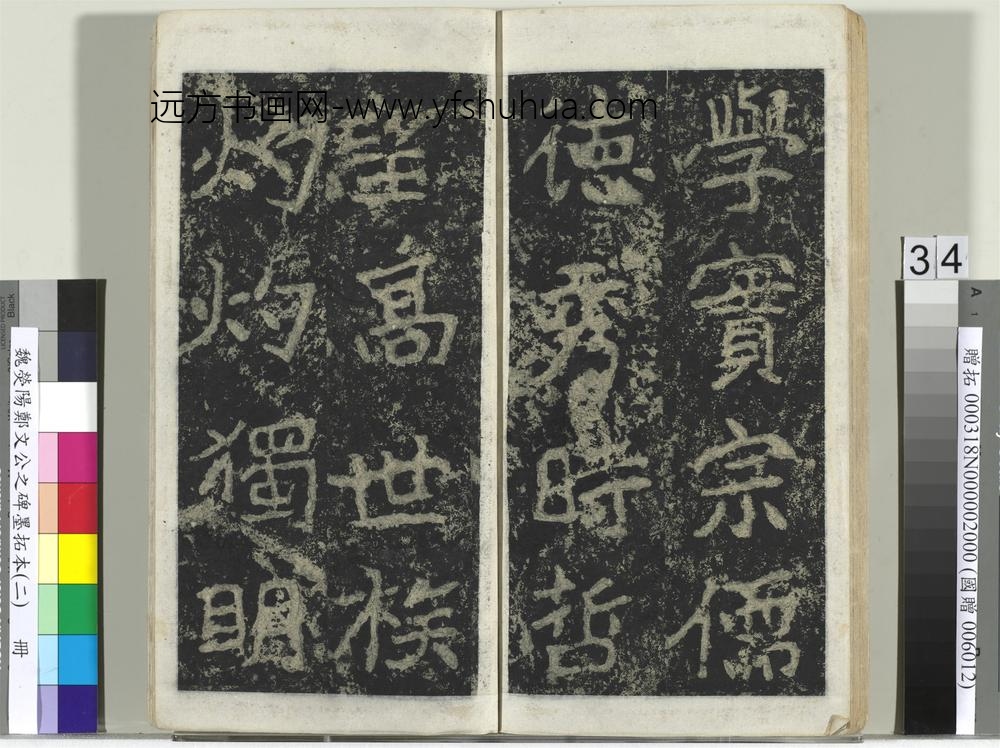 远方书画网-www.yfshuhua.com
學實宗儒
德秀時哲
望高世族
灼灼獨明
34
魏滎陽鄭文公之碑墨拓本(二) 冊
贈拓 000318N000002000 (國贈 006012)
Black
A
1